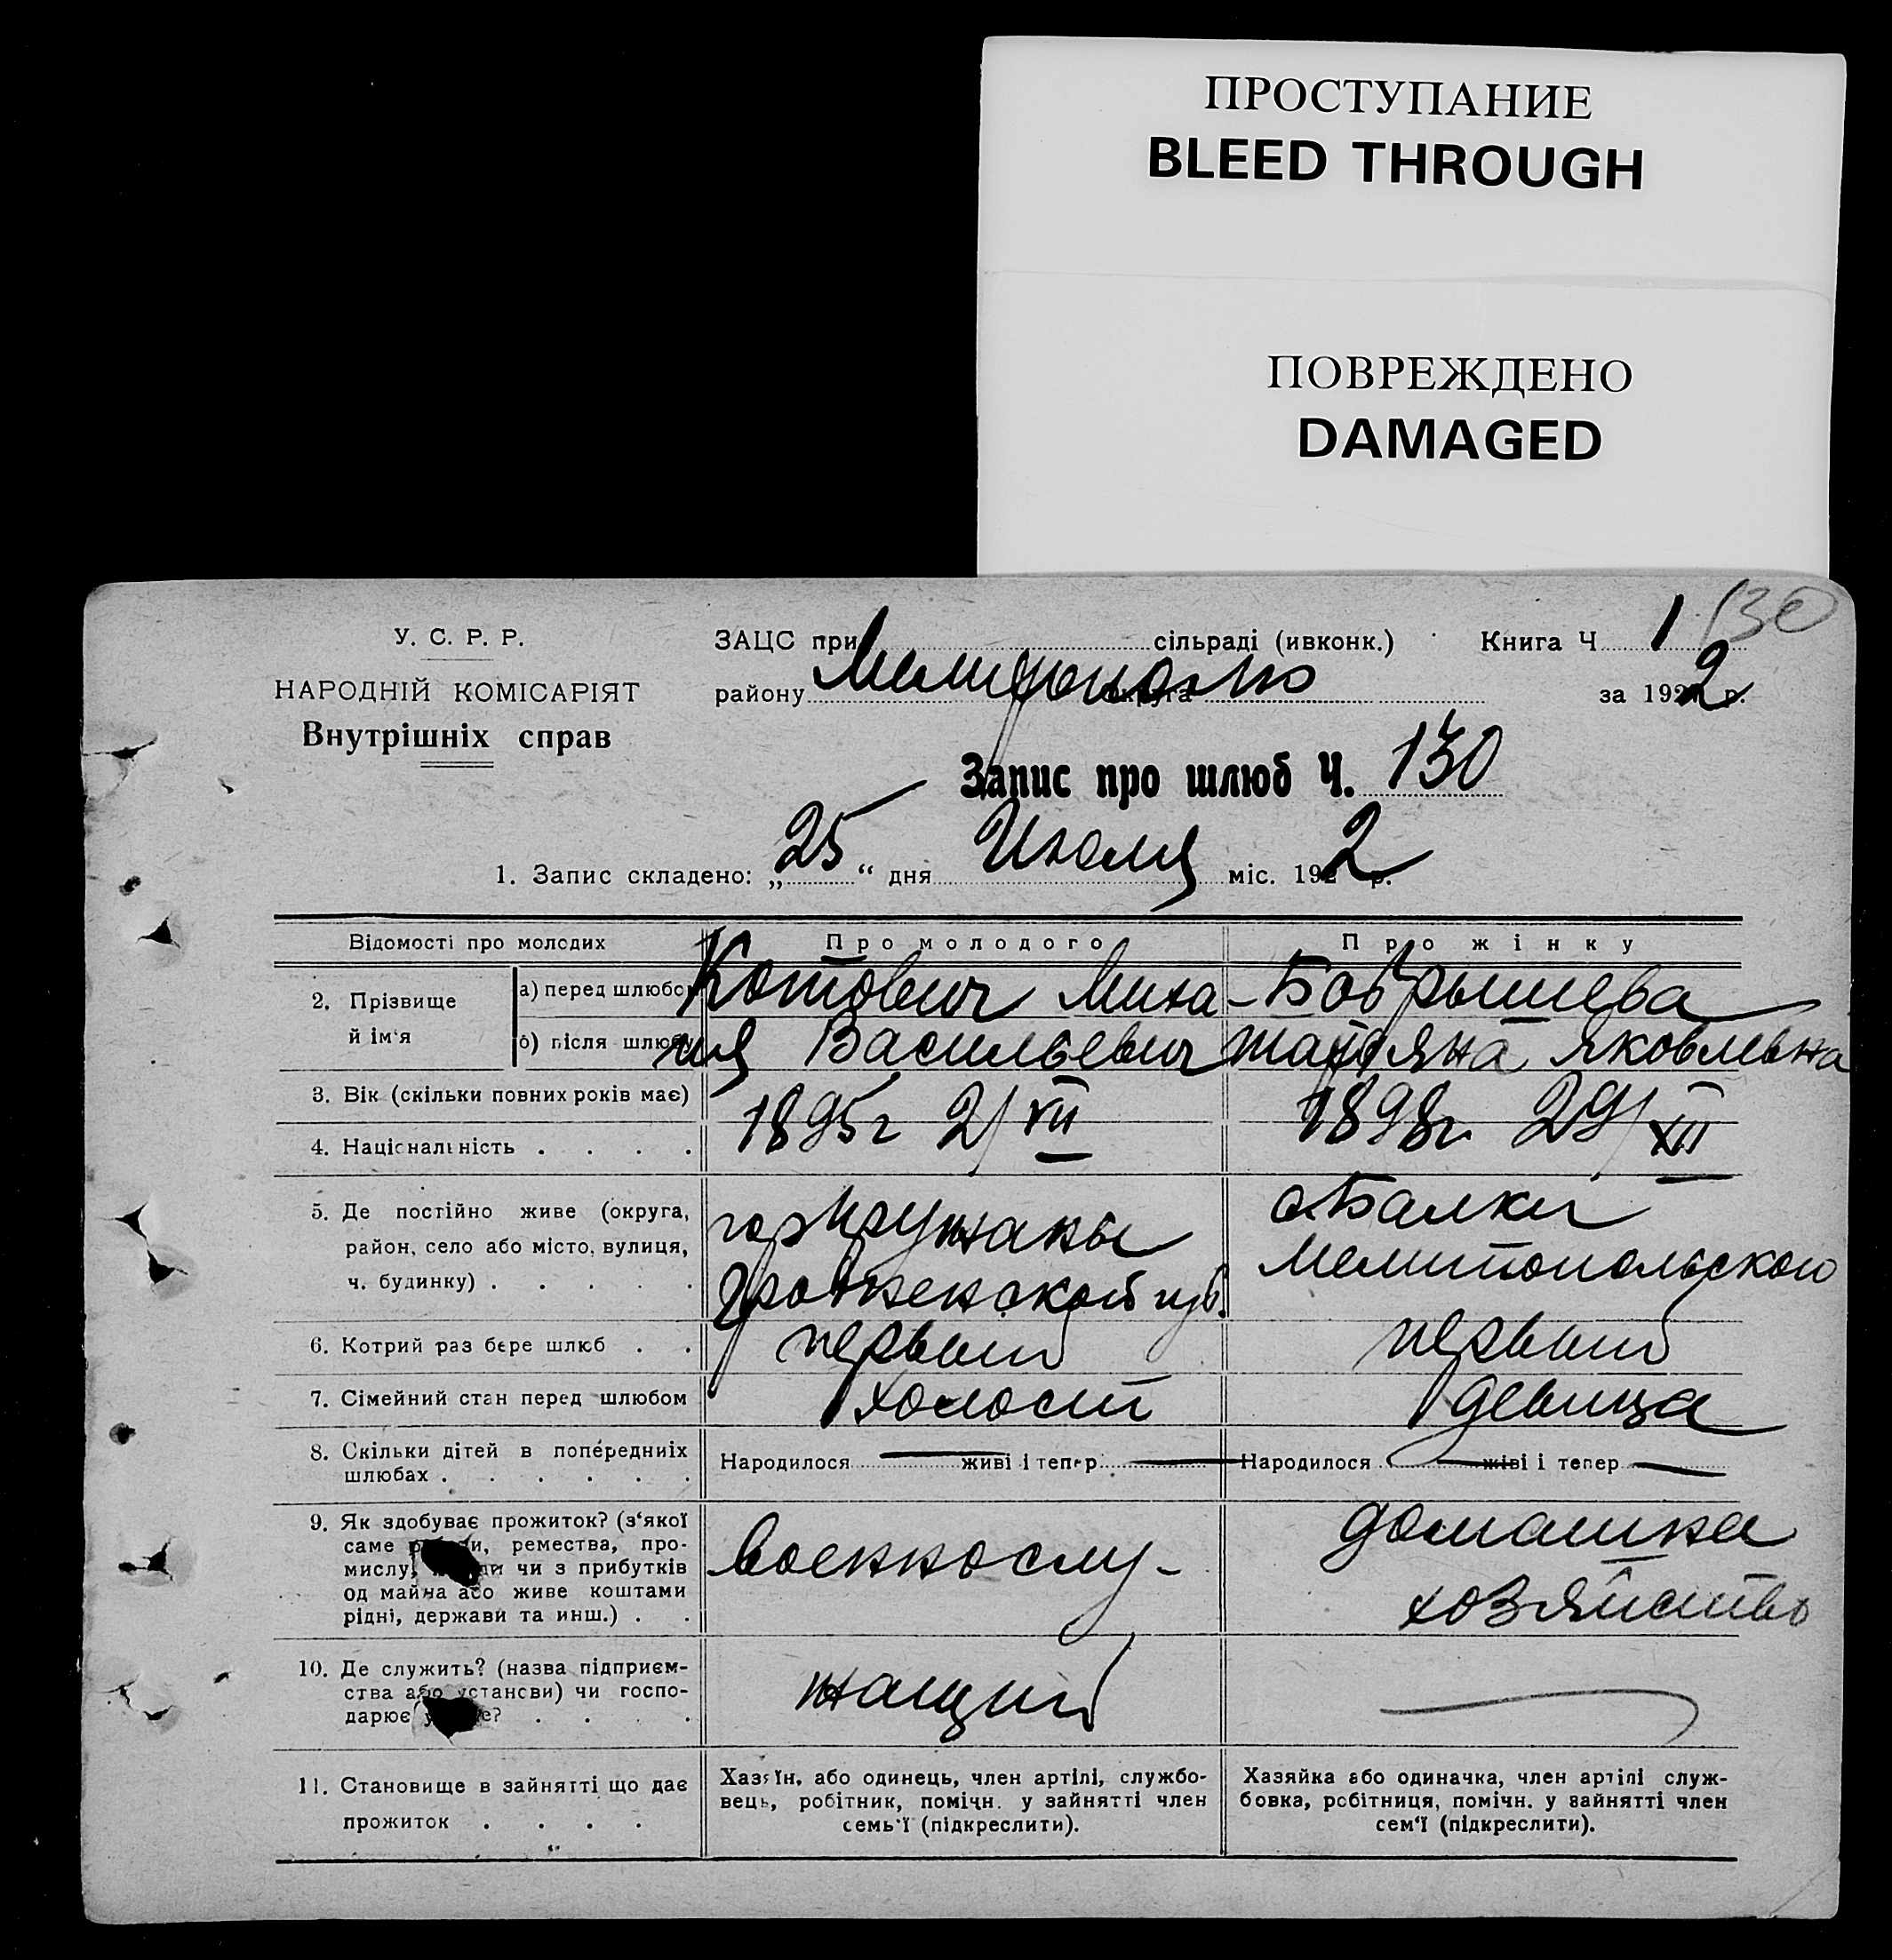 ПРОСТУПАНИЕ
BLEED THROUGH
ПОВРЕЖДЕНО
DAMAGED
130
У. С. Р. Р.
НАРОДНІЙ КОМІСАРІЯТ
Внутрішніх справ
ЗАЦС при сільраді (ивконк.) Книга Ч 1
району Мелитополь округа за 1922 р.
Запис про шлюб Ч. 130
1. Запис складено: „25“ дня Июля міс. 1922 р.
Відомості про молодих
Про молодого
Про жінку
2. Прізвище й ім'я
а) перед шлюбом
б) після шлюбу
Котович Миха-
ил Васильевич
Бобрышева
Татьяна Яковлевна
3. Вік (скільки повних років має)
4. Національність . . . .
1895г 2/VII
1898г. 29/XII
5. Де постійно живе (округа,
район, село або місто, вулиця,
ч. будинку) . . . . .
гор Пружаны
Гродненской губ.
с. Балки
Мелитопольского
6. Котрий раз бере шлюб . . первый первый
7. Сімейний стан перед шлюбом холост девица
8. Скільки дітей в попередніх
шлюбах . . . . . .
Народилося живі і тепер
Народилося живі і тепер
9. Як здобуває прожиток? (з'якої
саме и, ремества, про-
мислу, чи з прибутків
од майна або живе коштами
рідні, держави та инш.) . .
военнослу-
домашнее
хозяйство
10. Де служить? (назва підприєм-
ства або установи) чи госпо-
дарює . . . .
жащий
11. Становище в зайнятті що дає
прожиток . . . .
Хазяїн, або одинець, член артілі, службо-
вець, робітник, помічн. у зайнятті член
семь'ї (підкреслити).
Хазяйка або одиначка, член артілі служ-
бовка, робітниця, помічн. у зайнятті член
сем'ї (підкреслити).